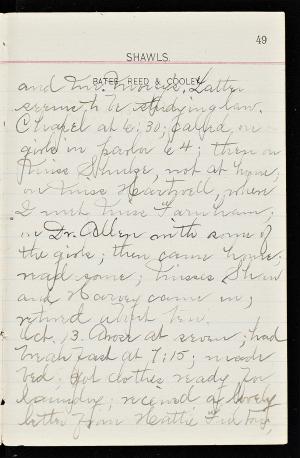 49
SHAWLS.
BATES, REED & COOLEY.
and Mr. Morris. Latter
seems to be studying law.
Chapel at 6:30; called on
girls in parlor 64; then on
Miss Sludge, not at home;
on Miss Hartzell, where
I met Miss Farnham;
on Dr. Allen with some of
the girls; then came home;
read some; Misses Shaw
and Harvey came in;
retired about ten.
Oct. 13. Arose at seven; had
breakfast at 7:15; made
bed; got clothes ready for
laundry; received a lovely
letter from Hattie